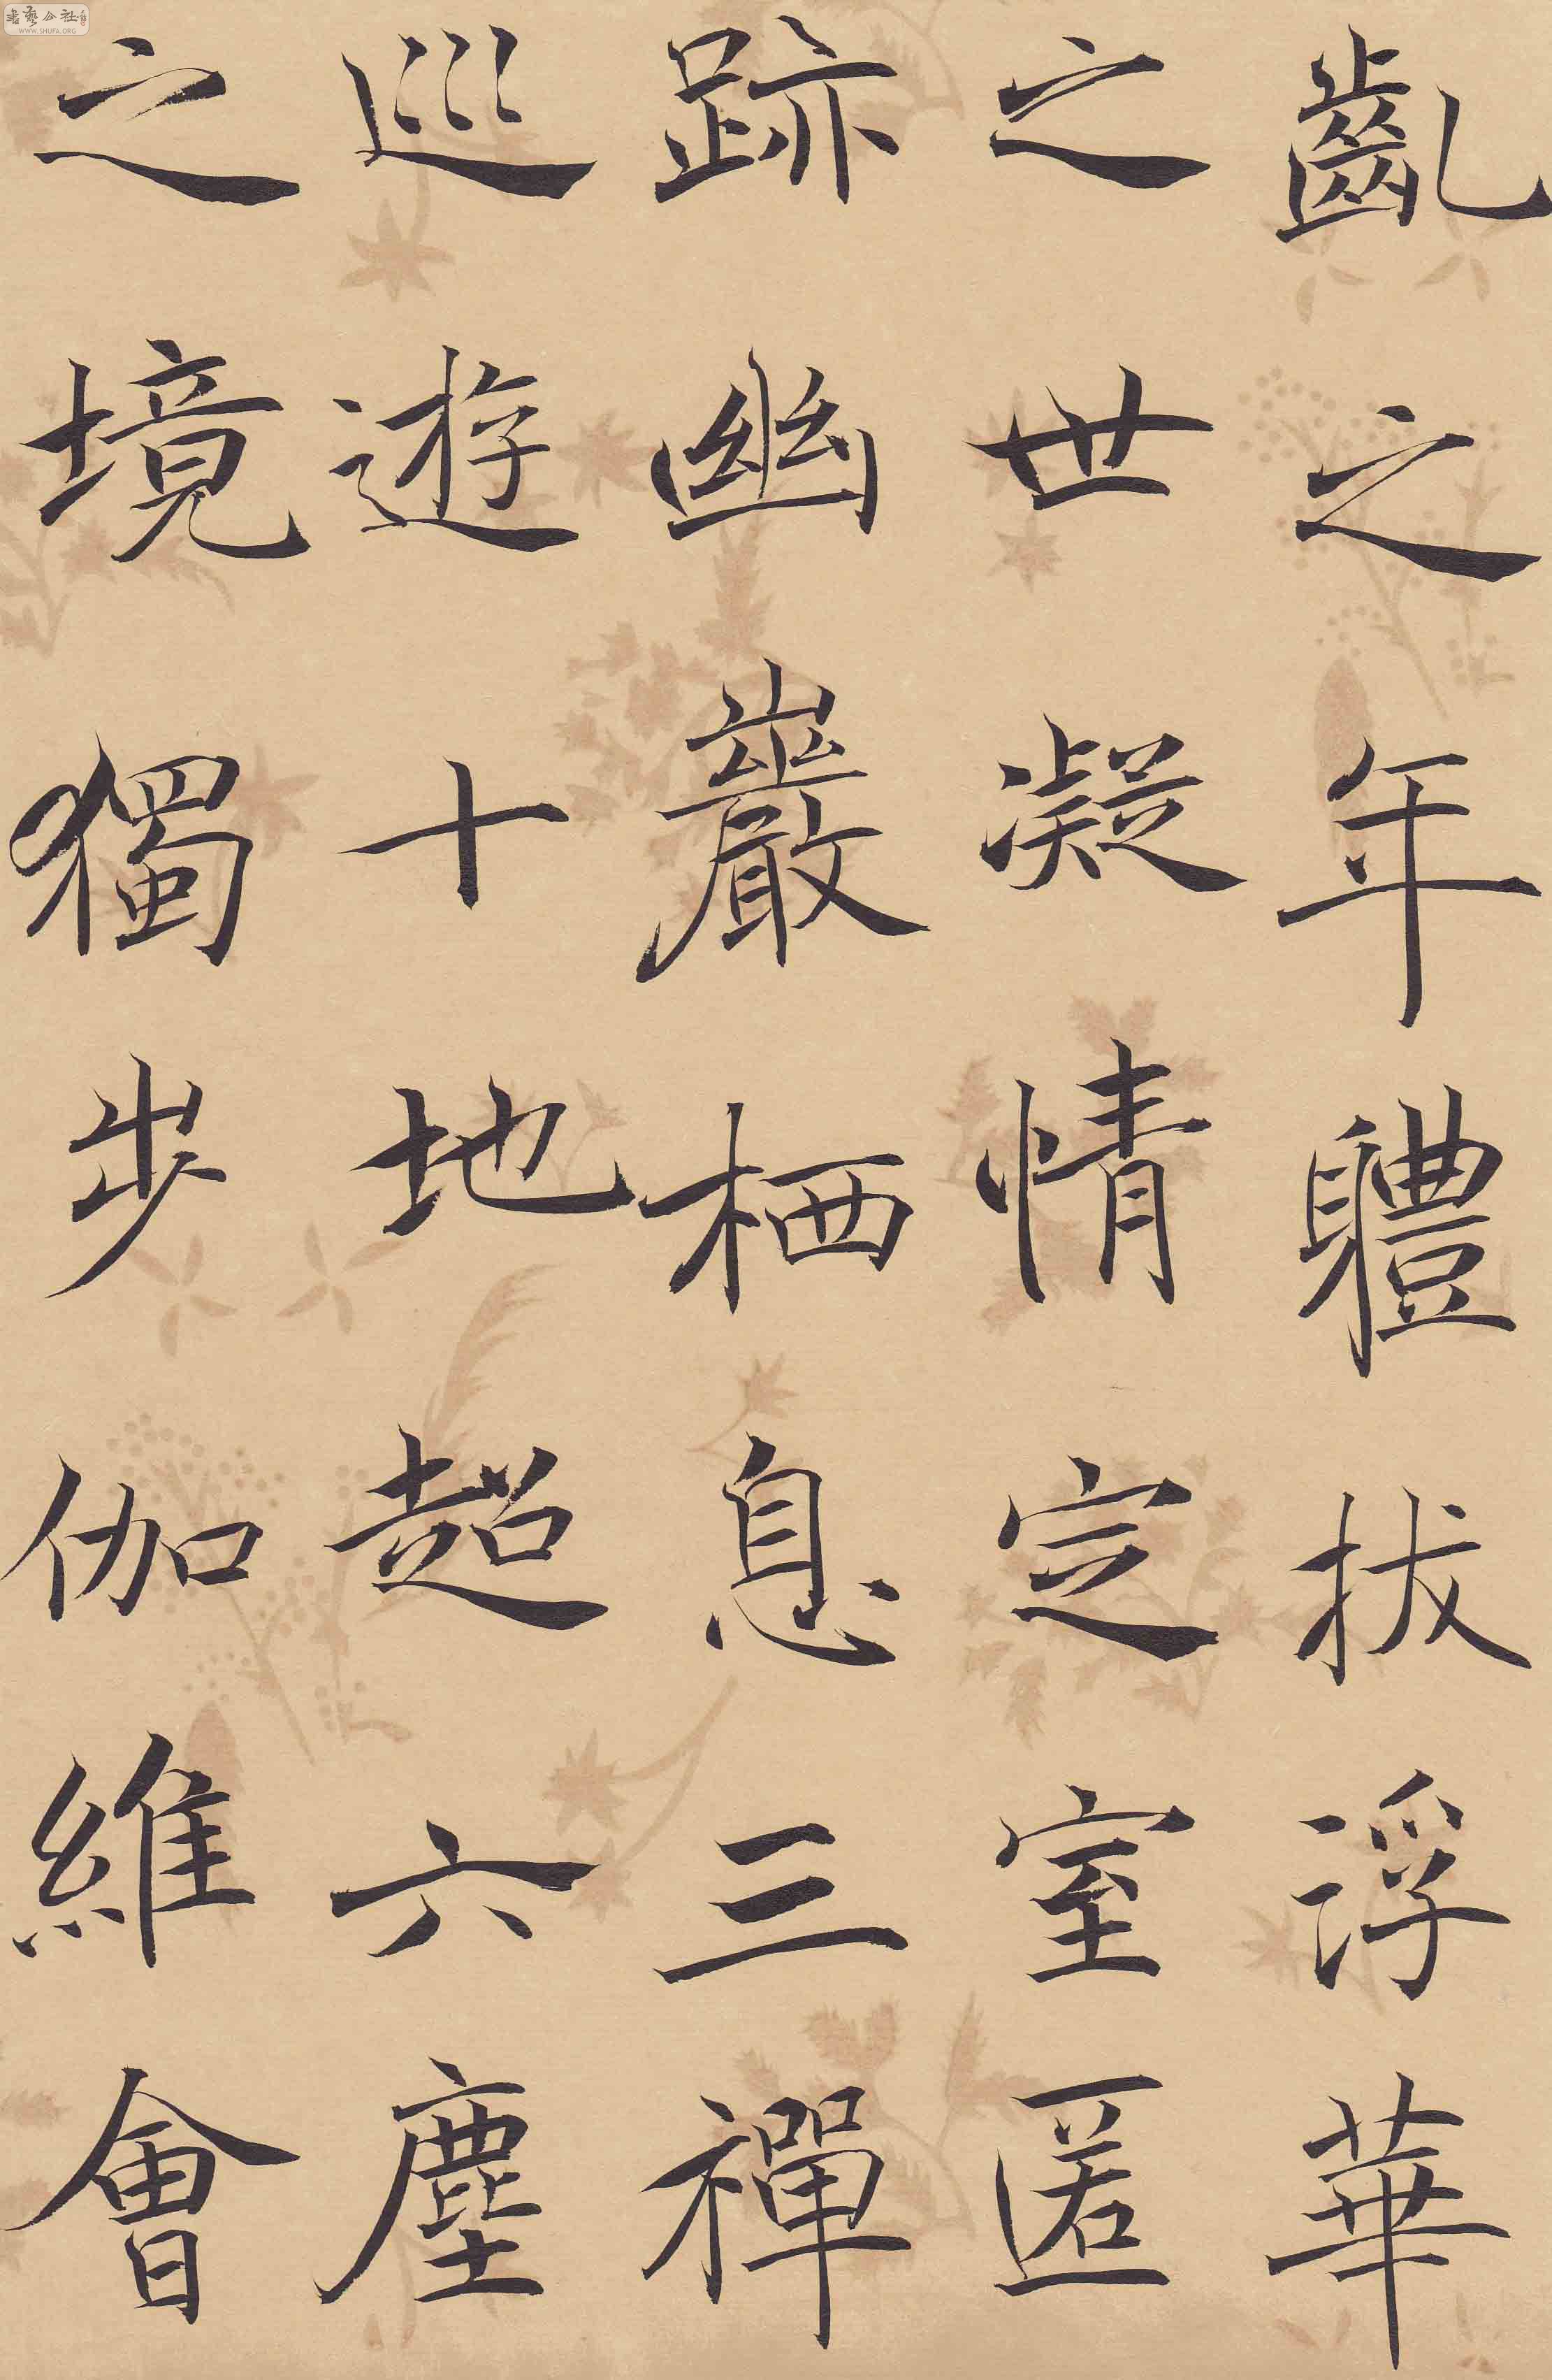 齓之年體拔浮華
之世凝情定室匿
跡幽巖栖息三禪
巡遊十地超六塵
之境獨步伽維會
書藝公社
WWW.SHUFA.ORG